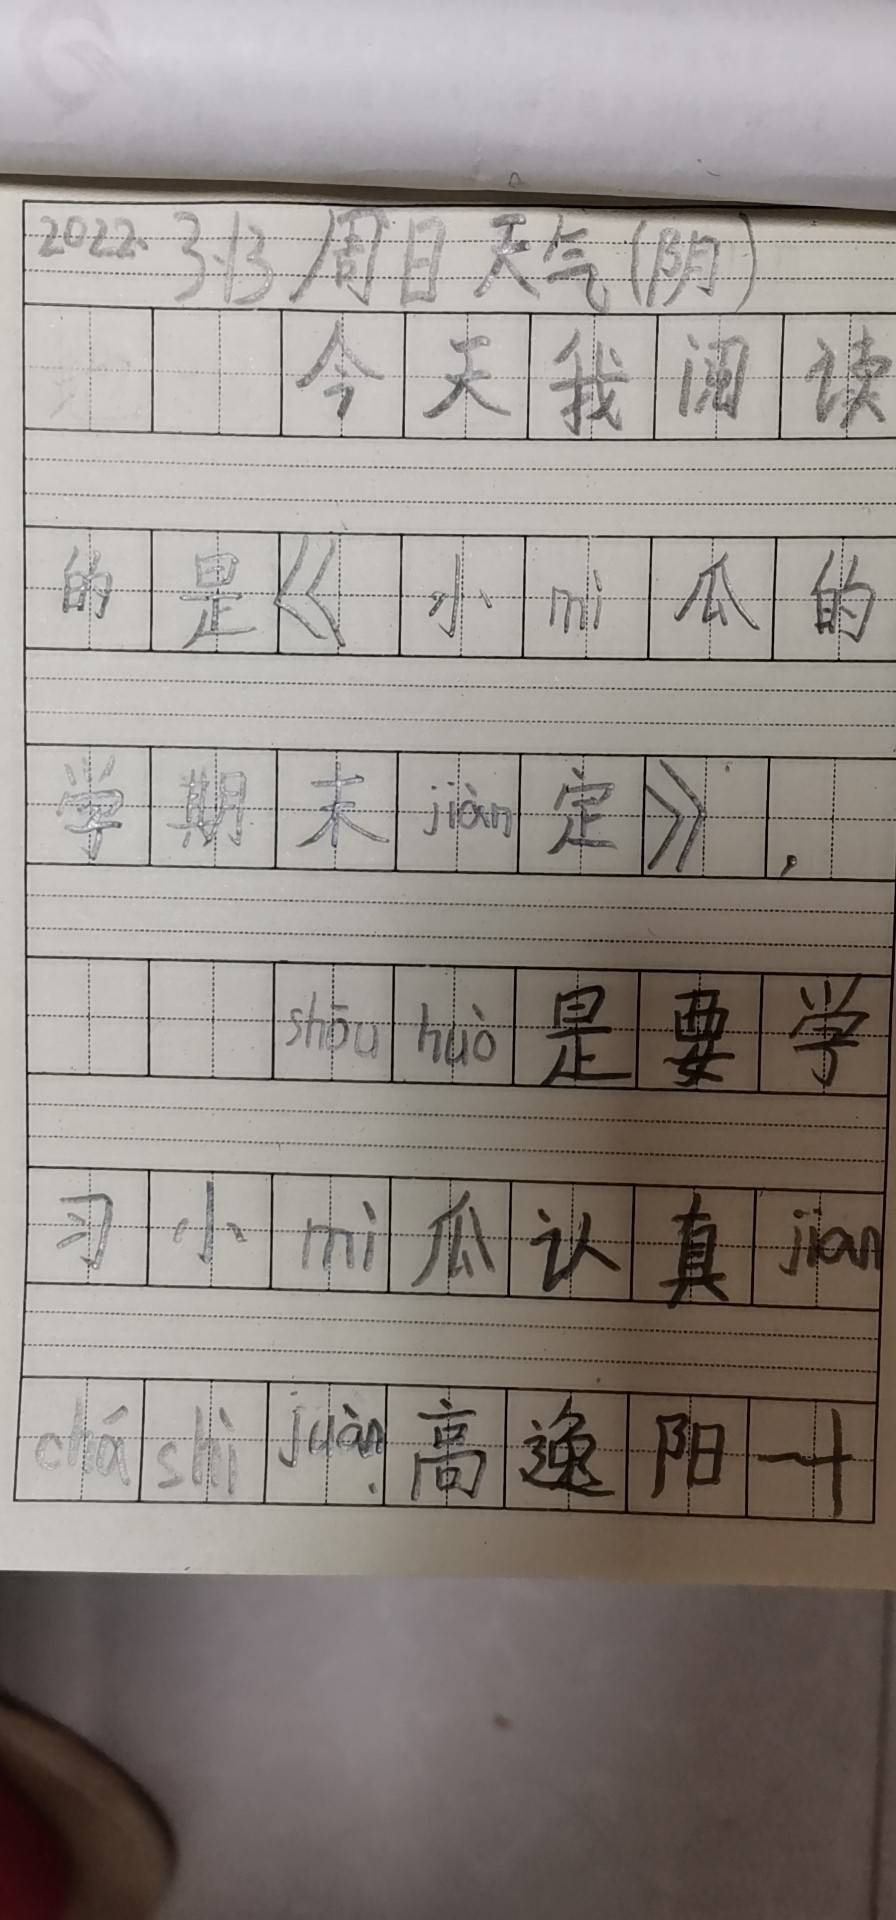 2022. 3.13 周日 天气(阴)
今天我阅读
的是《小mì瓜的
学期末jiàn定》,
shōu huò是要学
习小mì瓜认真jian
chá shì juàn.高逸阳一十